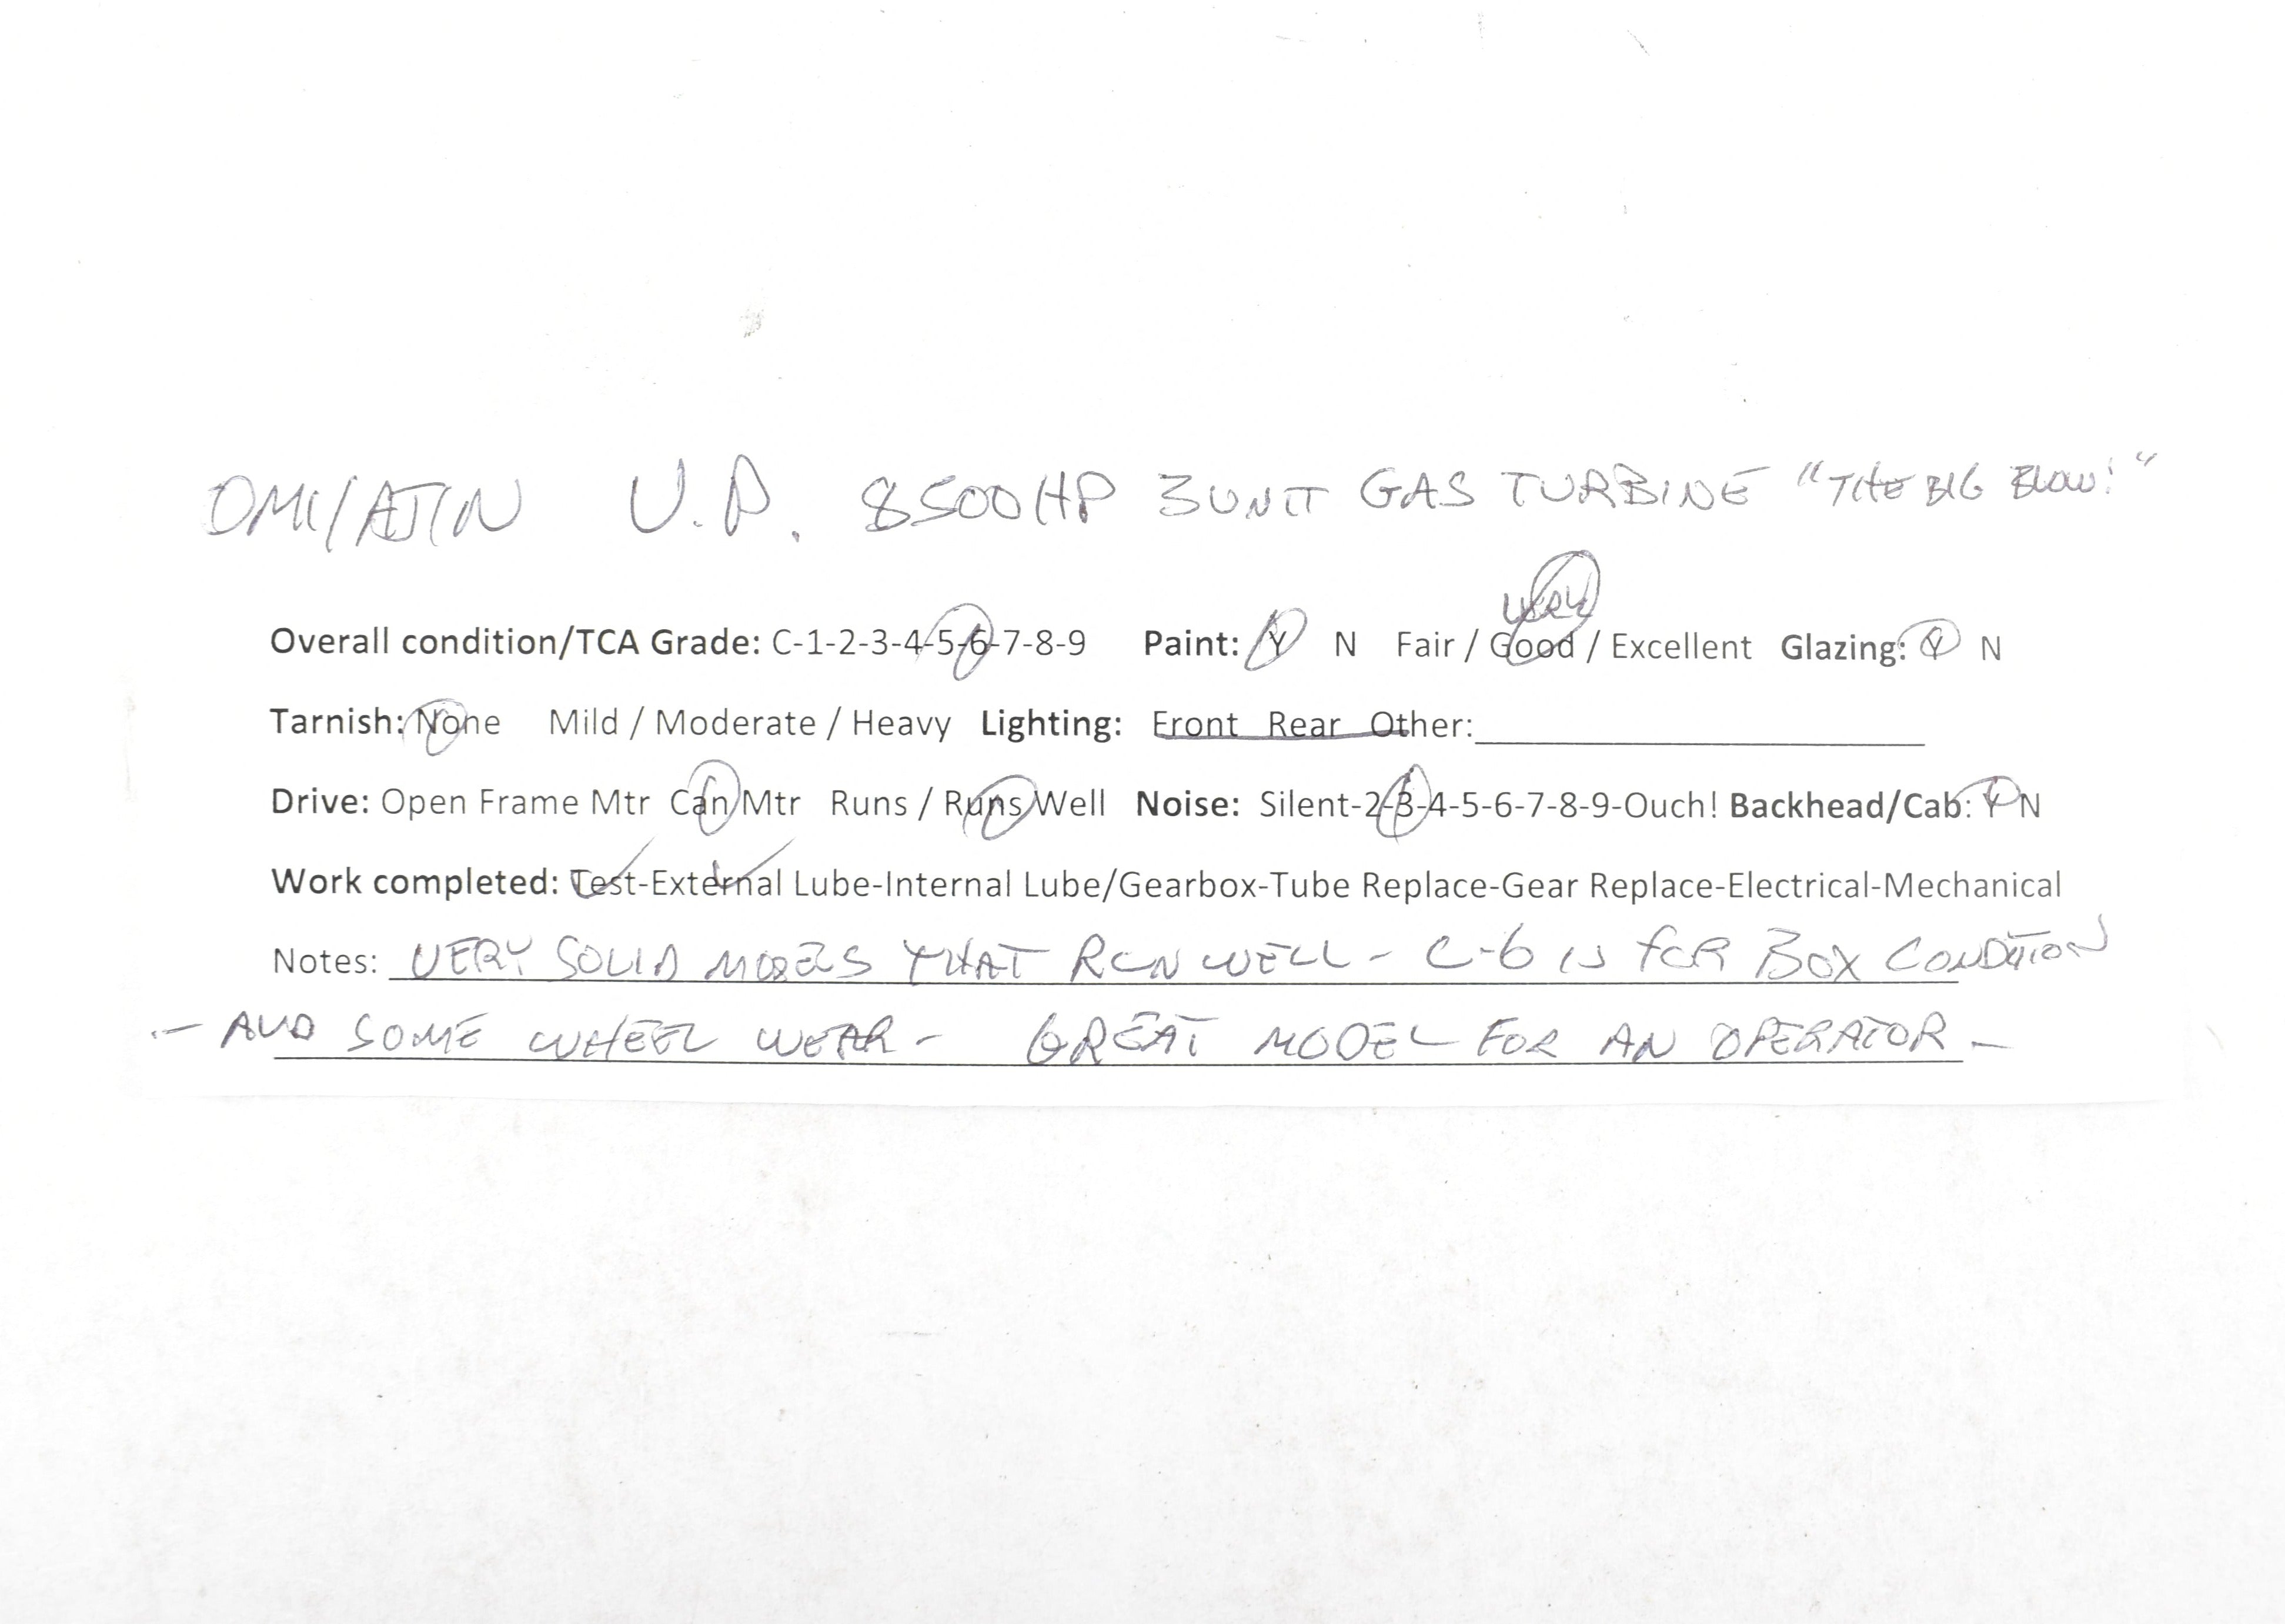 OMI/AJIN U.P. 8500HP 3 UNIT GAS TURBINE "THE BIG BLOW!"
very
Overall condition/TCA Grade: C-1-2-3-4-5-6-7-8-9 Paint: Y N Fair / Good / Excellent Glazing: Y N
Tarnish: None Mild / Moderate / Heavy Lighting: Front Rear Other:
Drive: Open Frame Mtr Can Mtr Runs / Runs Well Noise: Silent-2-3-4-5-6-7-8-9-Ouch! Backhead/Cab: Y N
Work completed: Test-External Lube-Internal Lube/Gearbox-Tube Replace-Gear Replace-Electrical-Mechanical
Notes: VERY SOLID MODELS THAT RUN WELL - C-6 IS FOR BOX CONDITION
- AND SOME WHEEL WEAR - GREAT MODEL FOR AN OPERATOR -